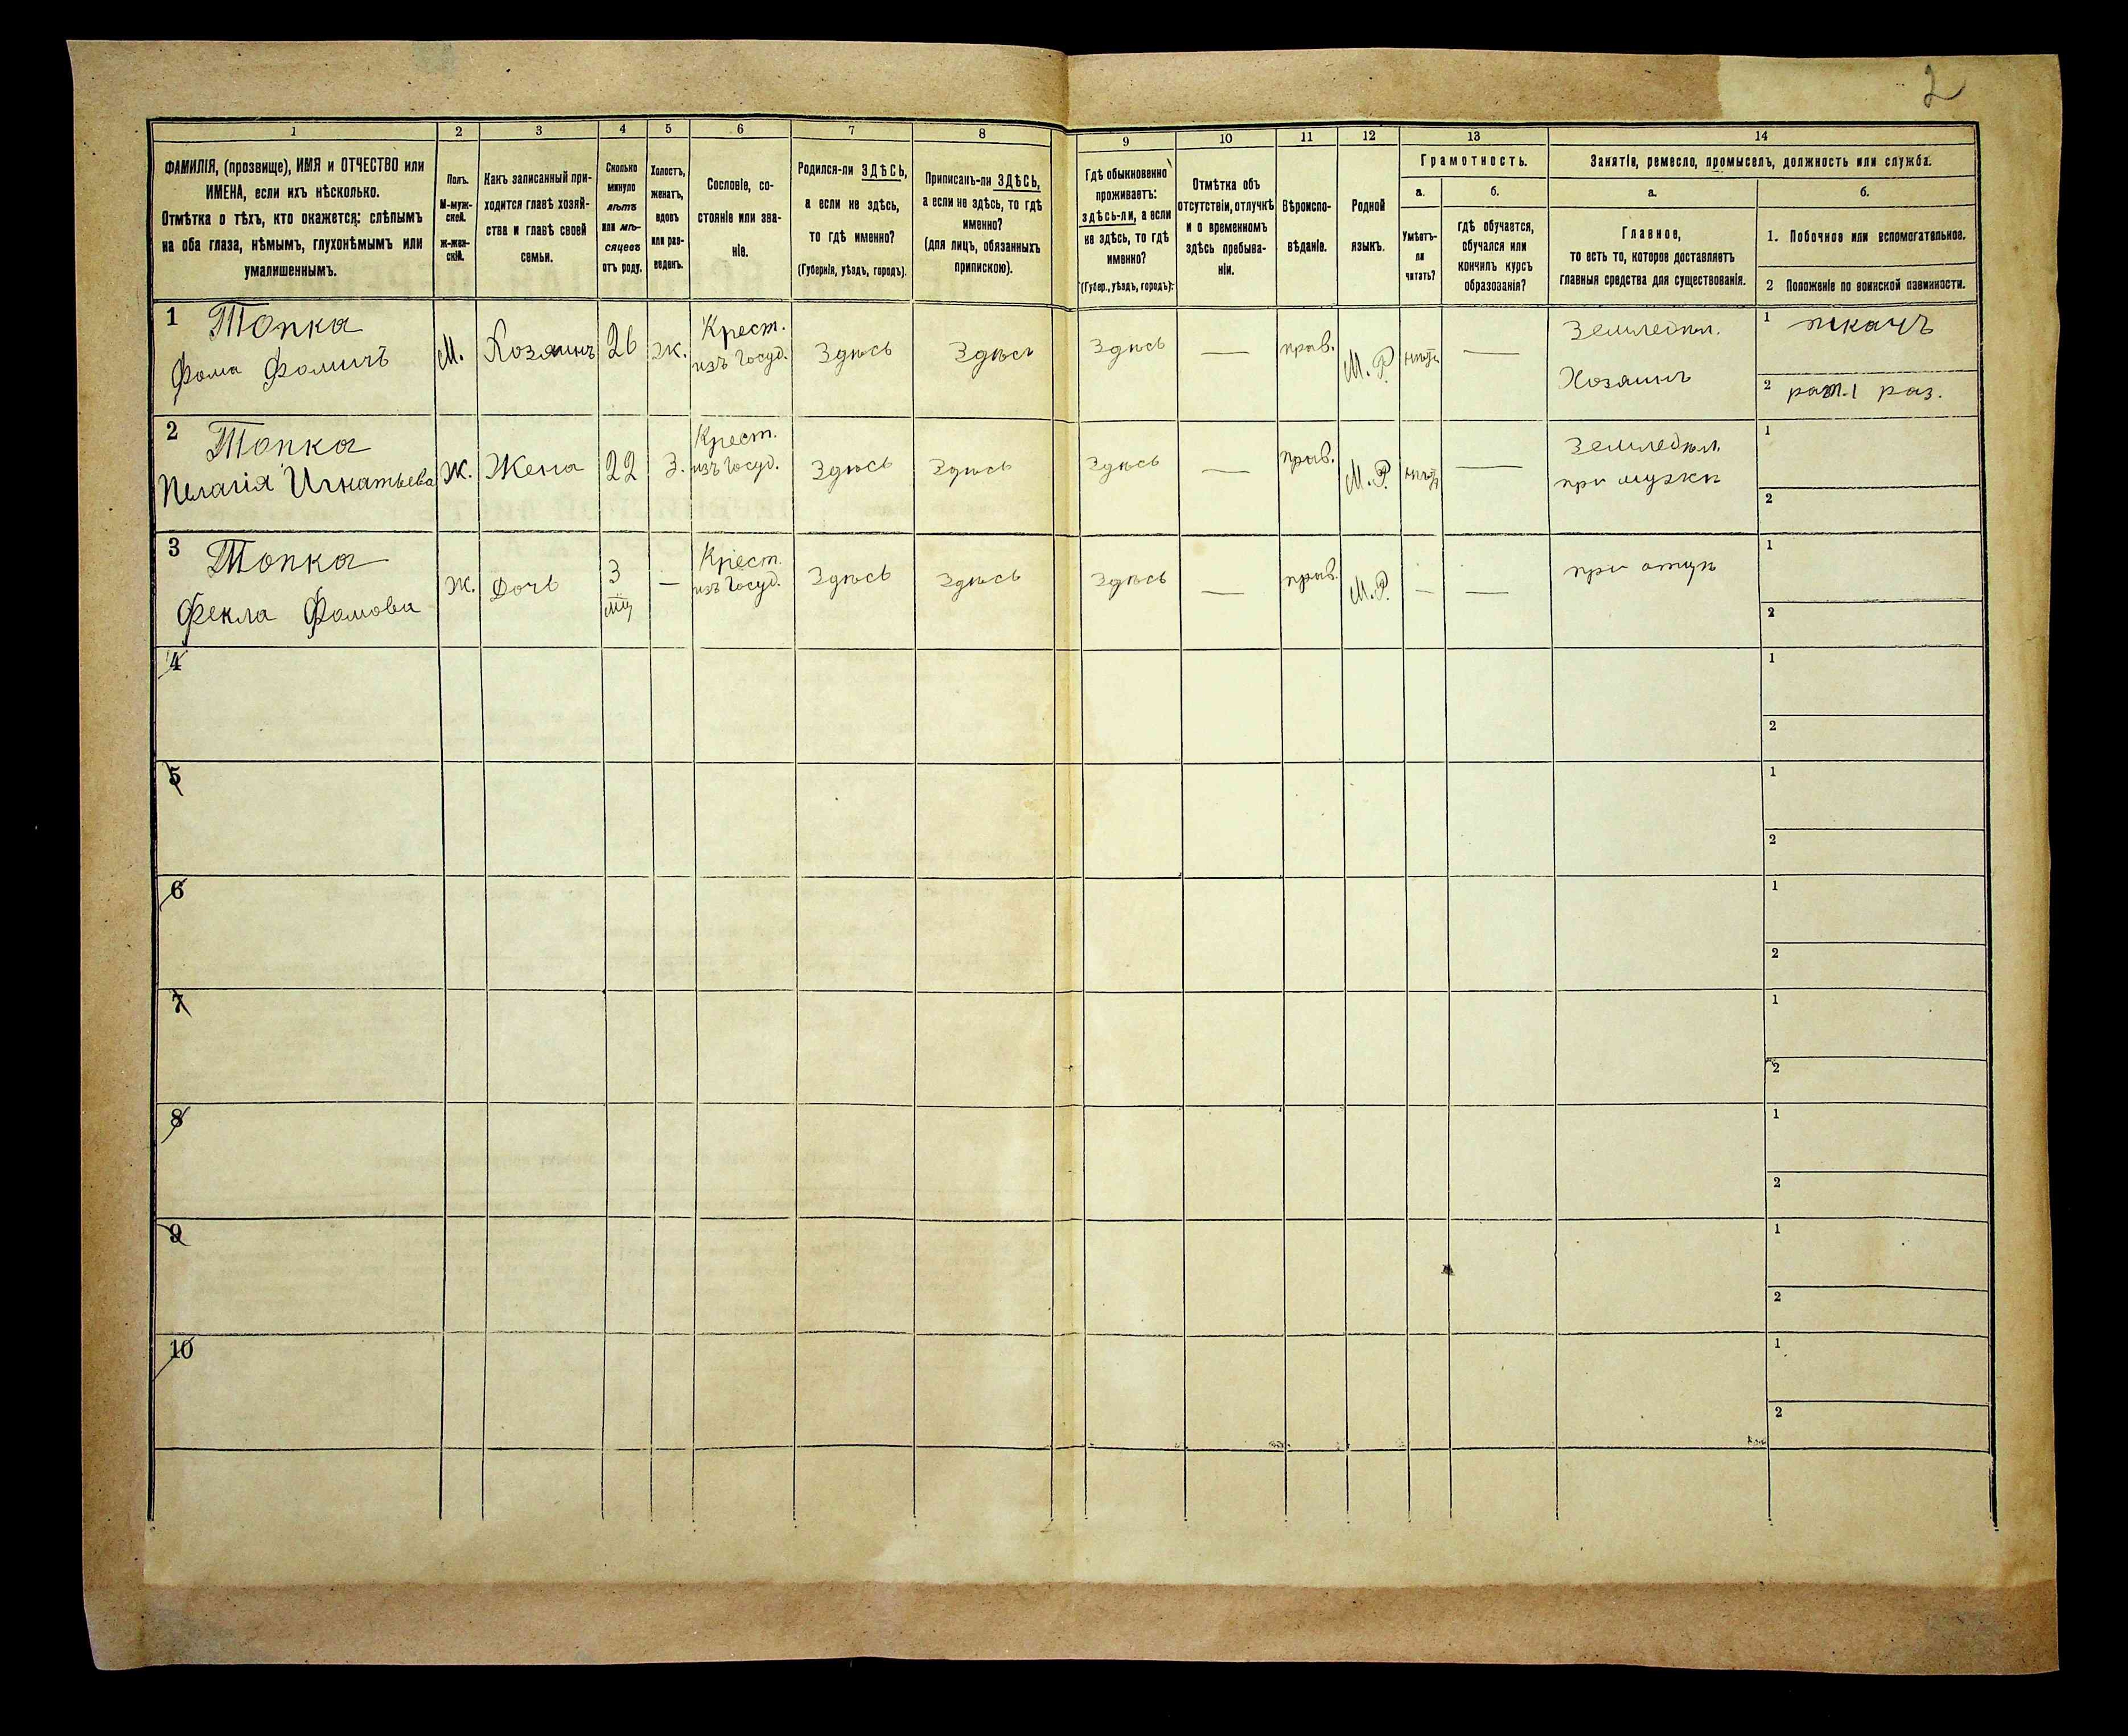 2
1 2 3 4 5 6 7 8 9 10 11 12 13 14
ФАМИЛІЯ, (прозвище), ИМЯ и ОТЧЕСТВО или
ИМЕНА, если ихъ нѣсколько.
Отмѣтка о тѣхъ, кто окажется: слѣпымъ
на оба глаза, нѣмымъ, глухонѣмымъ или
умалишеннымъ.
Полъ.
М-муж-
ской.
ж-жен-
скій.
Какъ записанный при-
ходится главѣ хозяй-
ства и главѣ своей
семьи.
Сколько
минуло
лѣтъ
или мѣ-
сяцевъ
отъ роду.
Холостъ,
женатъ,
вдовъ
или раз-
веденъ.
Сословіе, со-
стояніе или зва-
ніе.
Родился-ли ЗДѢСЬ,
а если не здѣсь,
то гдѣ именно?
(Губернія, уѣздъ, городъ).
Приписанъ-ли ЗДѢСЬ,
а если не здѣсь, то гдѣ
именно?
(для лицъ, обязанныхъ
припискою).
Гдѣ обыкновенно
проживаетъ:
здѣсь-ли, а если
не здѣсь, то гдѣ
именно?
(Губер., уѣздъ, городъ).
Отмѣтка объ
отсутствіи, отлучкѣ
и о временномъ
здѣсь пребыва-
ніи.
Вѣроиспо-
вѣданіе.
Родной
языкъ.
Грамотность.
а.
Умѣетъ-
ли
читать?
б.
гдѣ обучается,
обучался или
кончилъ курсъ
образованія?
Занятія, ремесло, промыселъ, должность или служба.
а.
Главное,
то есть то, которое доставляетъ
главныя средства для существованія.
б.
1. Побочное или вспомогательное.
2 Положеніе по воинской повинности.
1 Топка
Фома Фомичъ
М.
Хозяинъ
26
ж.
Крест.
изъ Госуд.
Здѣсь
Здѣсь
Здѣсь
—
прав.
М. Р.
нѣтъ
—
Земледѣл.
Хозяинъ
1 ткачъ
2 рат. 1 раз.
2 Топка
Пелагія Игнатьева
Ж.
Жена
22
З.
Крест.
изъ Госуд.
Здѣсь
Здѣсь
Здѣсь
—
прав.
М. Р.
нѣтъ
—
Земледѣл.
при мужѣ
1
2
3 Топка
Фекла Фомова
Ж.
Дочь
3
мц
—
Крест.
изъ Госуд.
Здѣсь
Здѣсь
Здѣсь
—
прав.
М. Р.
—
—
при отцѣ
1
2
4
1
2
5
1
2
6
1
2
7
1
2
8
1
2
9
1
2
10
1
2